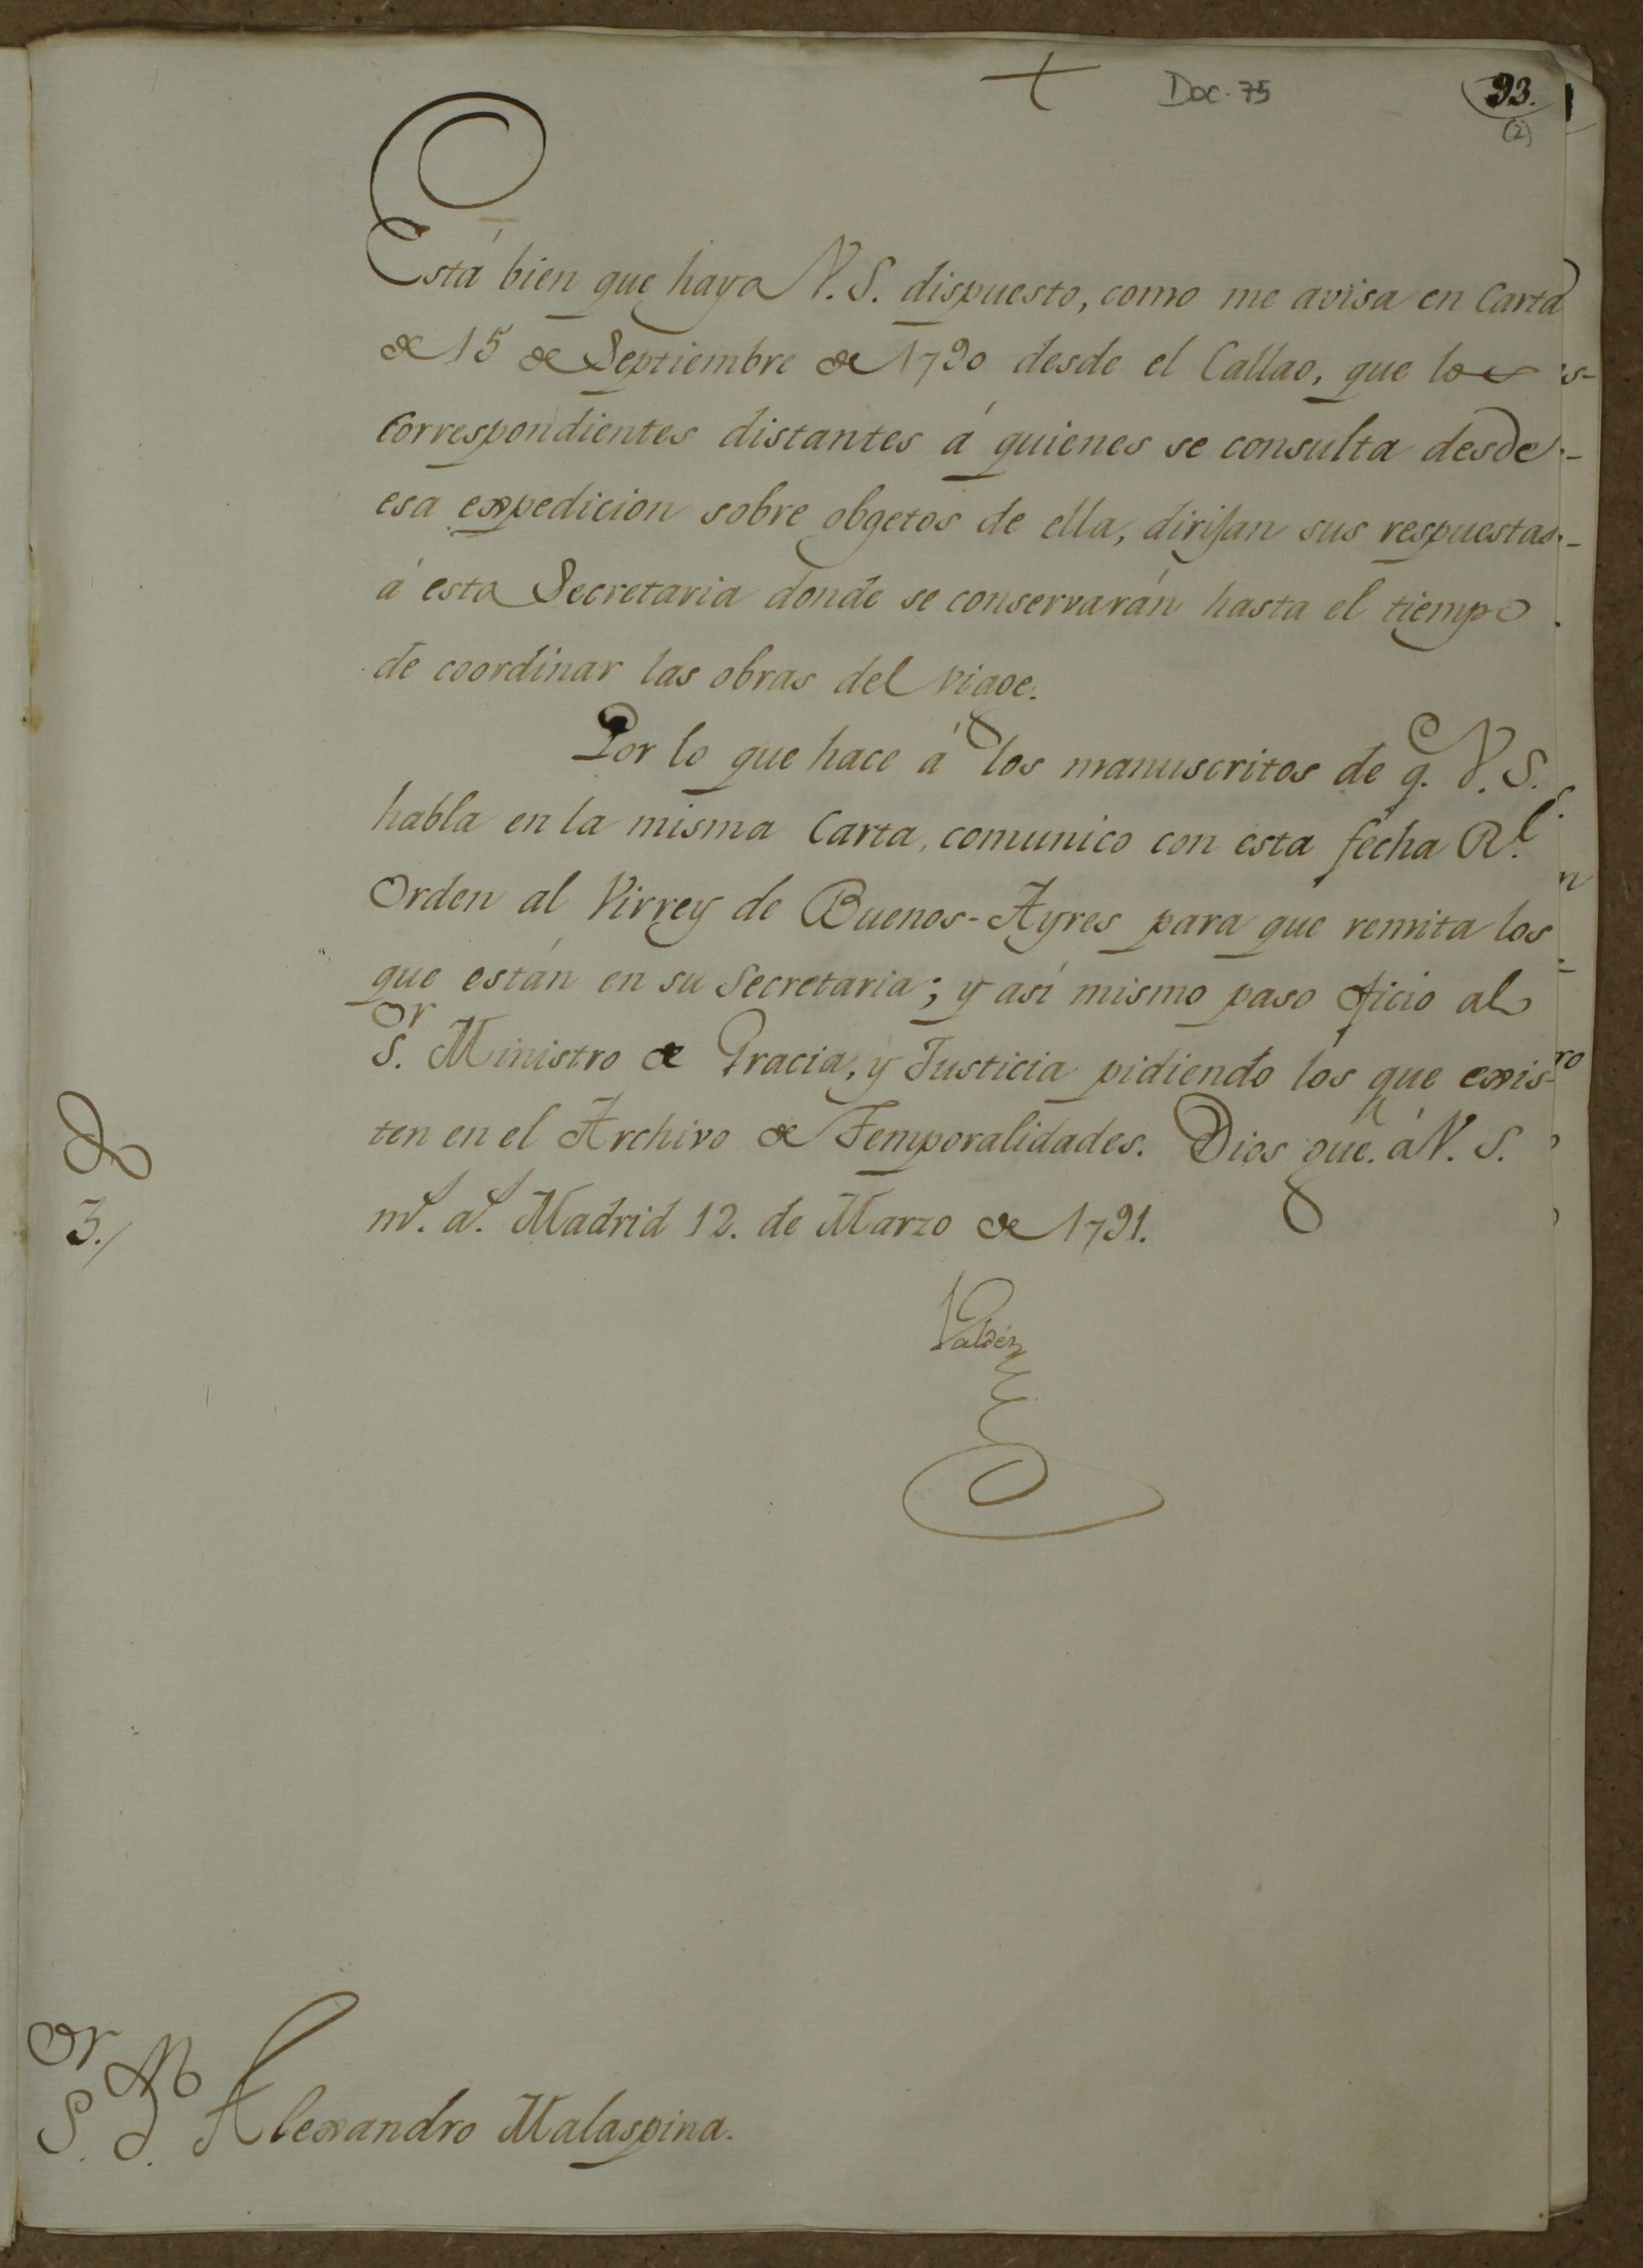 + Doc. 75 93.
(2)
Está bien que haya V. S. dispuesto, como me avisa en Carta
de 15 de Septiembre de 1790 desde el Callao, que los
Correspondientes distantes á quienes se consulta desde
esa expedicion sobre obgetos de ella, dirijan sus respuestas
á esta Secretaria donde se conservarán hasta el tiempo
de coordinar las obras del viage.
Por lo que hace á los manuscritos de q.e V. S.
habla en la misma Carta, comunico con esta fecha R.l
Orden al Virrey de Buenos-Ayres para que remita los
que están en su Secretaria; y así mismo paso oficio al
S.or Ministro de Gracia, y Justicia pidiendo los que exis-
ten en el Archivo de Temporalidades. Dios gue. á V. S.
m.s a.s Madrid 12. de Marzo de 1791.
Valdés
3.
S.or D.n Alexandro Malaspina.